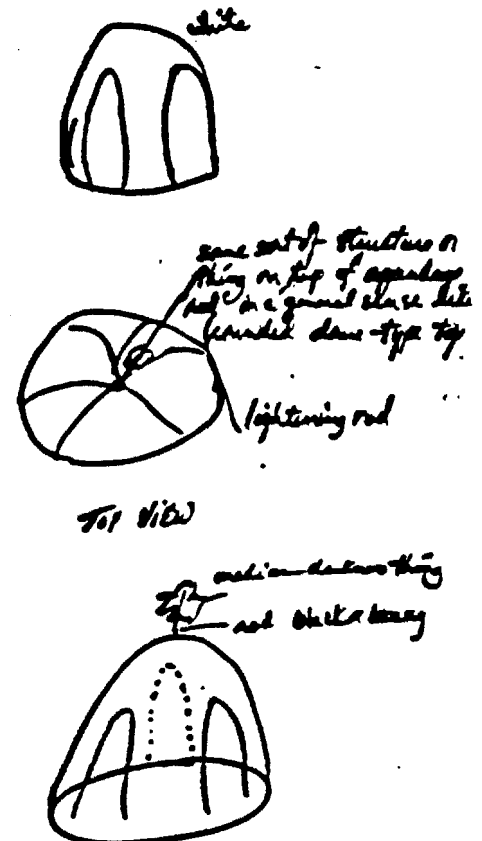 white
some sort of structure or
thing on top of
rod in a general sense
rounded dome-type top
lightening rod
Top View
medium darkness thing
rod black &